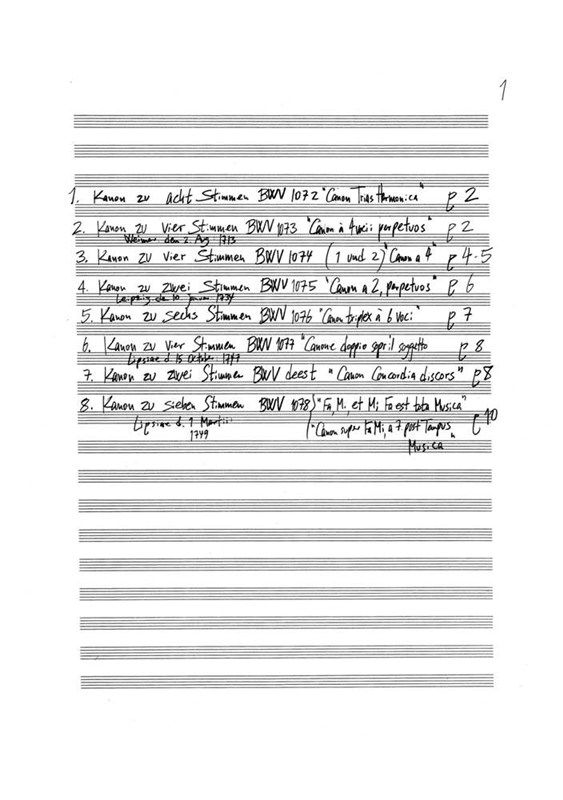 1
1. Kanon zu acht Stimmen BWV 1072 "Canon Trias Harmonica" p 2
2. Kanon zu vier Stimmen BWV 1073 "Canon à 4 voci perpetuos" p 2
Weimar den 2. Aug. 1713
3. Kanon zu vier Stimmen BWV 1074 (1 und 2) "Canon a 4" p 4-5
4. Kanon zu zwei Stimmen BWV 1075 "Canon a 2, perpetuos" p 6
Leipzig de 10 1734
5. Kanon zu sechs Stimmen BWV 1076 "Canon triplex à 6 voci" p 7
6. Kanon zu vier Stimmen BWV 1077 "Canone doppio sopr'il soggetto p 8
Lipsiae d. 15 October 1747
7. Kanon zu zwei Stimmen BWV deest "Canon Concordia discors" p 8
8. Kanon zu sieben Stimmen BWV 1078 "Fa, Mi, et Mi Fa est tota Musica"
p 10
Lipsiae d. 1 Martii "Canon super Fa Mi, a 7. post Tempus
1749 Musica"